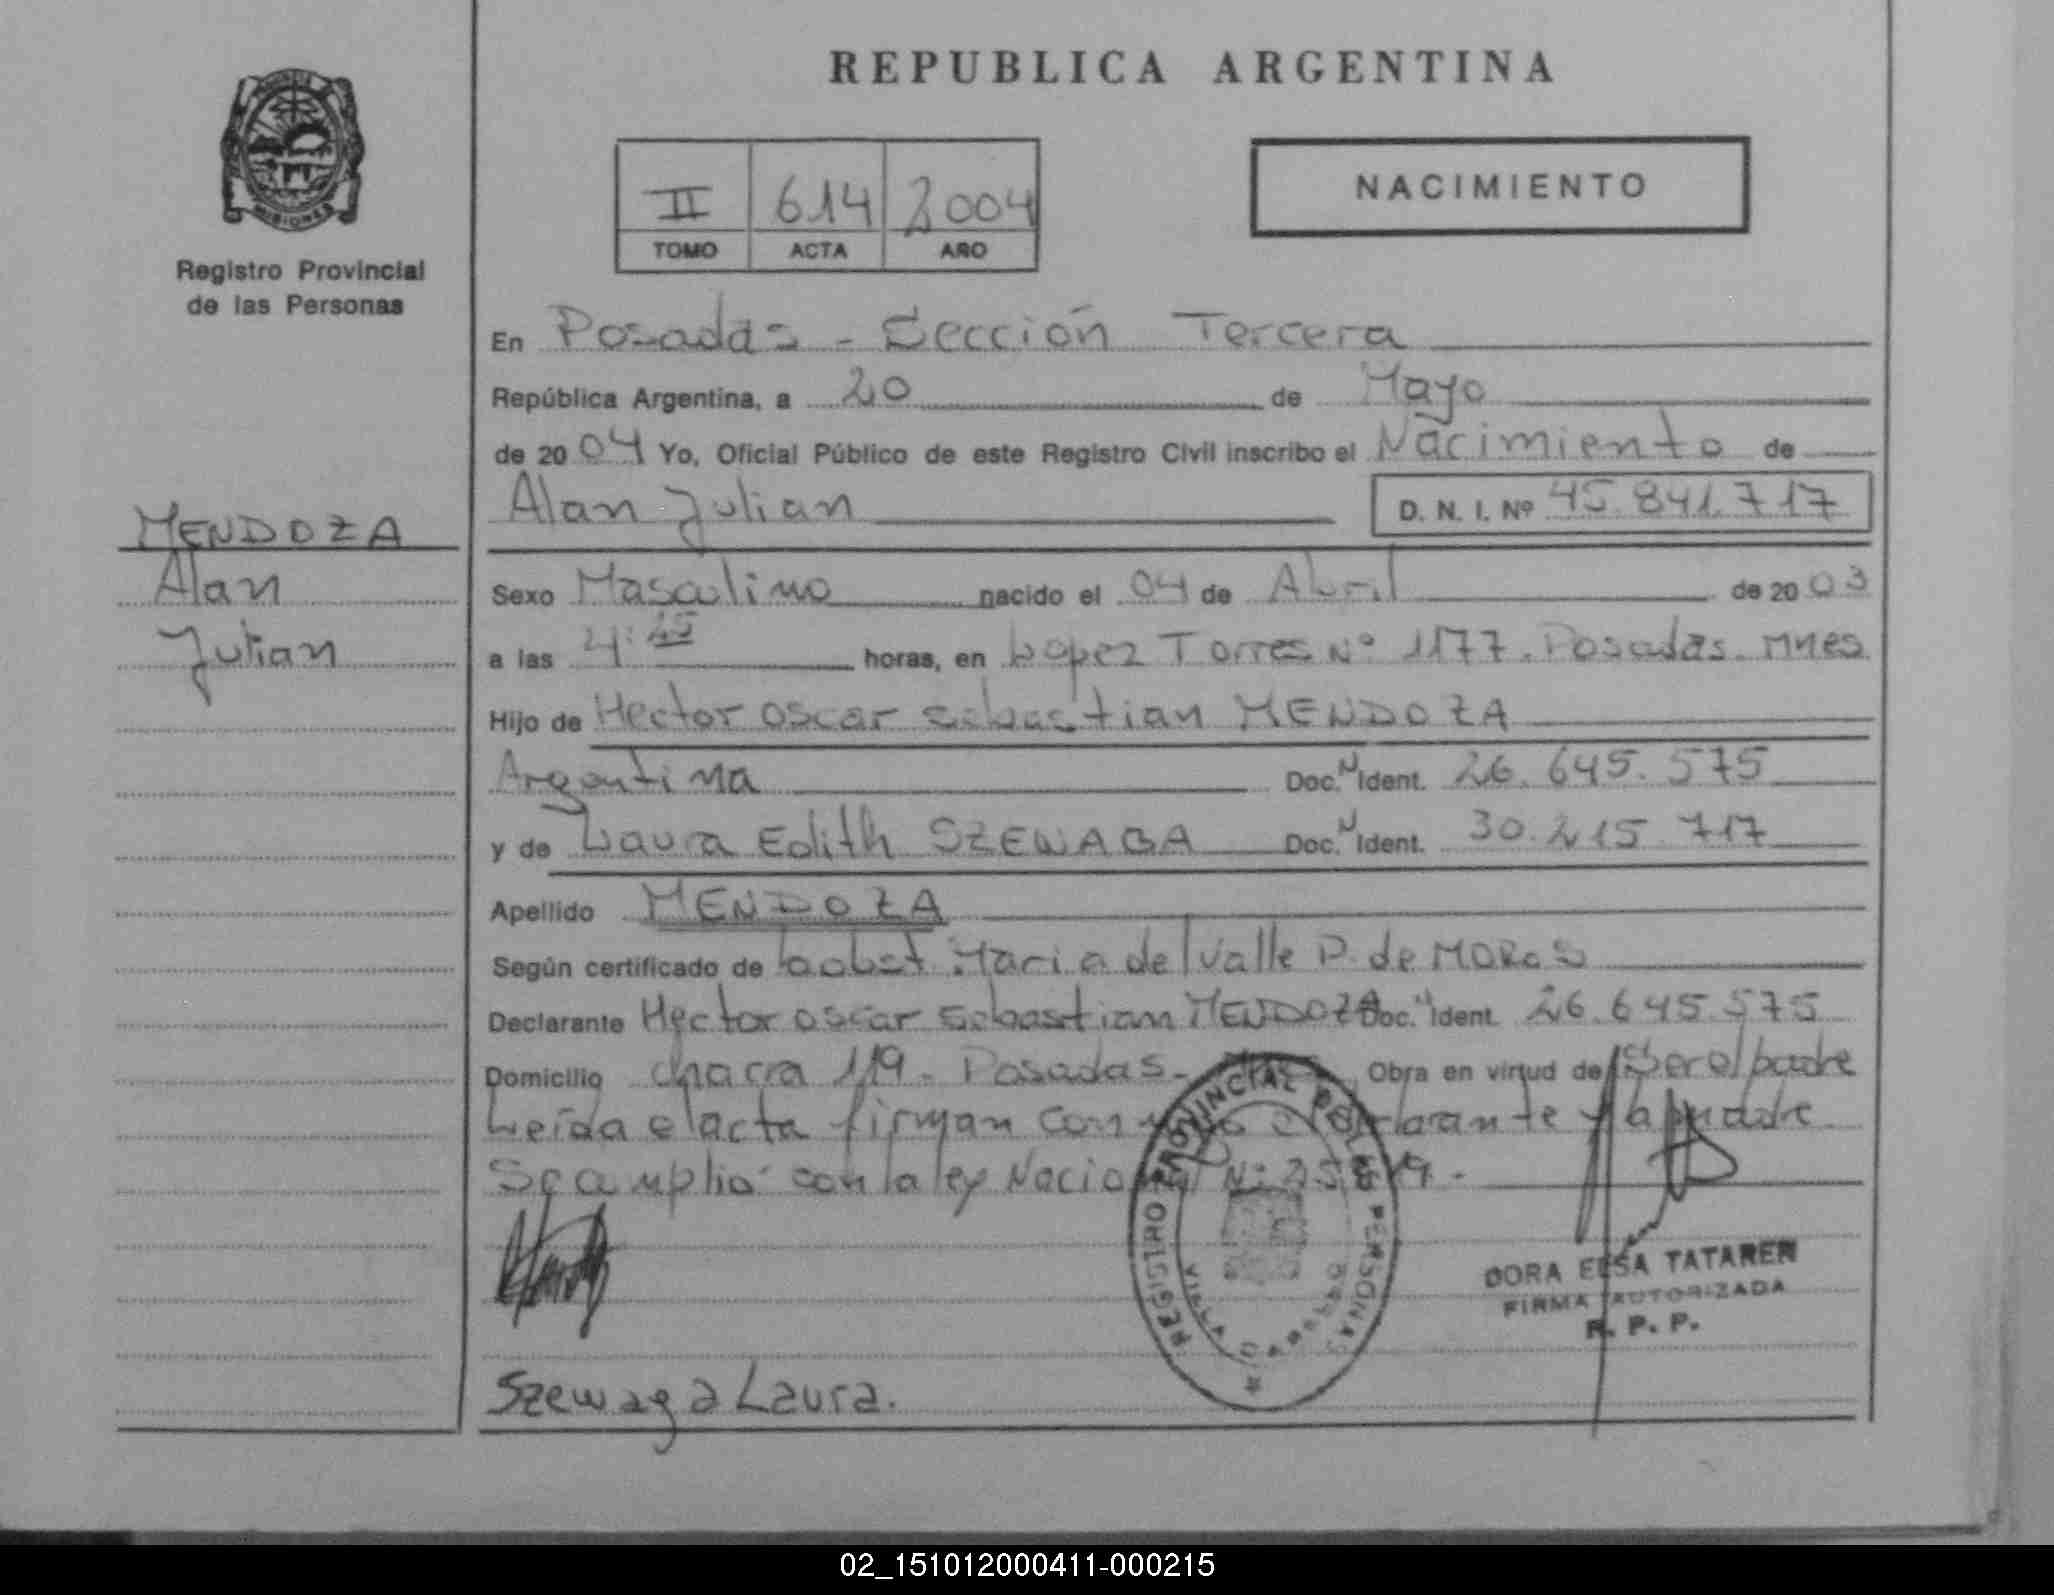 REPUBLICA ARGENTINA
MISIONES
Registro Provincial
de las Personas
II 614 2004
TOMO ACTA AÑO
NACIMIENTO
En Posadas - Sección Tercera
República Argentina, a 20 de Mayo
de 2004 Yo, Oficial Público de este Registro Civil inscribo el Nacimiento de
Alan Julian D. N. I. Nº 45.841.717
MENDOZA
Alan
Julian
Sexo Masculino nacido el 04 de Abril de 2003
a las 4:45 horas, en Lopez Torres Nº 1177. Posadas. Mnes
Hijo de Hector Oscar Sebastian MENDOZA
Argentina Doc. N Ident. 26.645.575
y de Laura Edith SZEWAGA Doc. N Ident. 30.215.717
Apellido MENDOZA
Según certificado de Maria del Valle P. de MORAS
Declarante Hector Oscar Sebastian MENDOZA Doc. N Ident. 26.645.575
Domicilio chacra 119 - Posadas - Obra en virtud de Ser el padre
Leída el acta firman declarante y la madre
Se cumplió con la ley Nacional Nº
REGISTRO PROVINCIAL DE LAS PERSONAS
VILLA
DORA ELSA TATAREN
FIRMA AUTORIZADA
R. P. P.
Szewaga Laura.
02_151012000411-000215